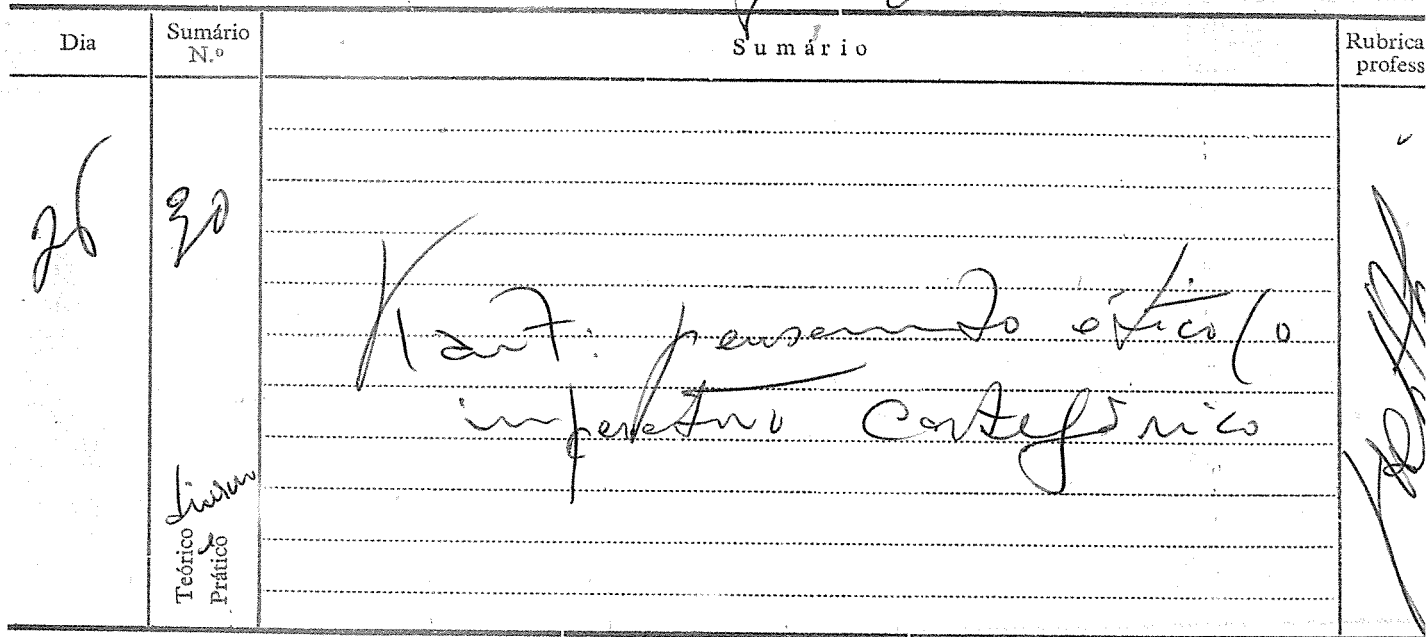 Dia
Sumário
N.º
Sumário
Rubrica
profess
26
30
Kant: pensamento ético (o
imperativo categórico
Teórico
Prático